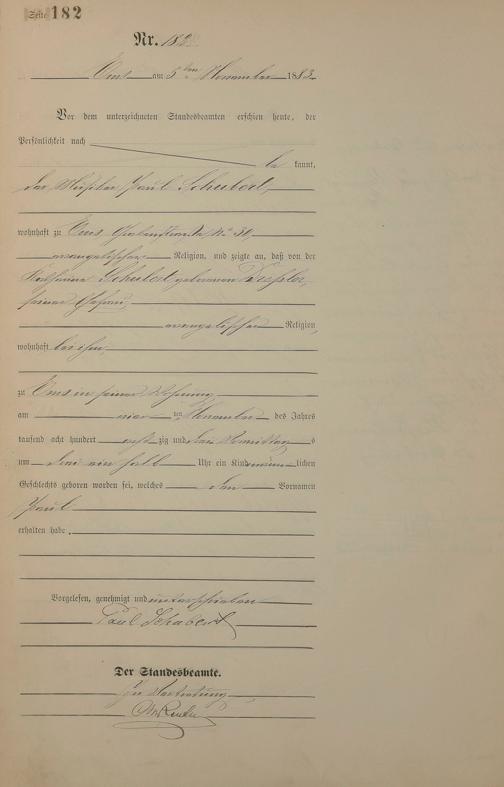 Seite 182
Nr. 182
Ems am 5ten November 1883
Vor dem unterzeichneten Standesbeamten erschien heute, der
Persönlichkeit nach
be kannt,
der Musiker Paul Schubert,
wohnhaft zu Ems No 30,
evangelischer Religion, und zeigte an, daß von der
Schubert geborenen
seiner Ehefrau,
evangelischer Religion,
wohnhaft bei ihm,
zu Ems in seiner Wohnung
am vier ten November des Jahres
tausend acht hundert acht zig und drei Vormittag s
um drei ein halb Uhr ein Kind männ lichen
Geschlechts geboren worden sei, welches den Vornamen
Paul
erhalten habe.
Vorgelesen, genehmigt und unterschrieben
Paul Schubert
Der Standesbeamte.
In Vertretung